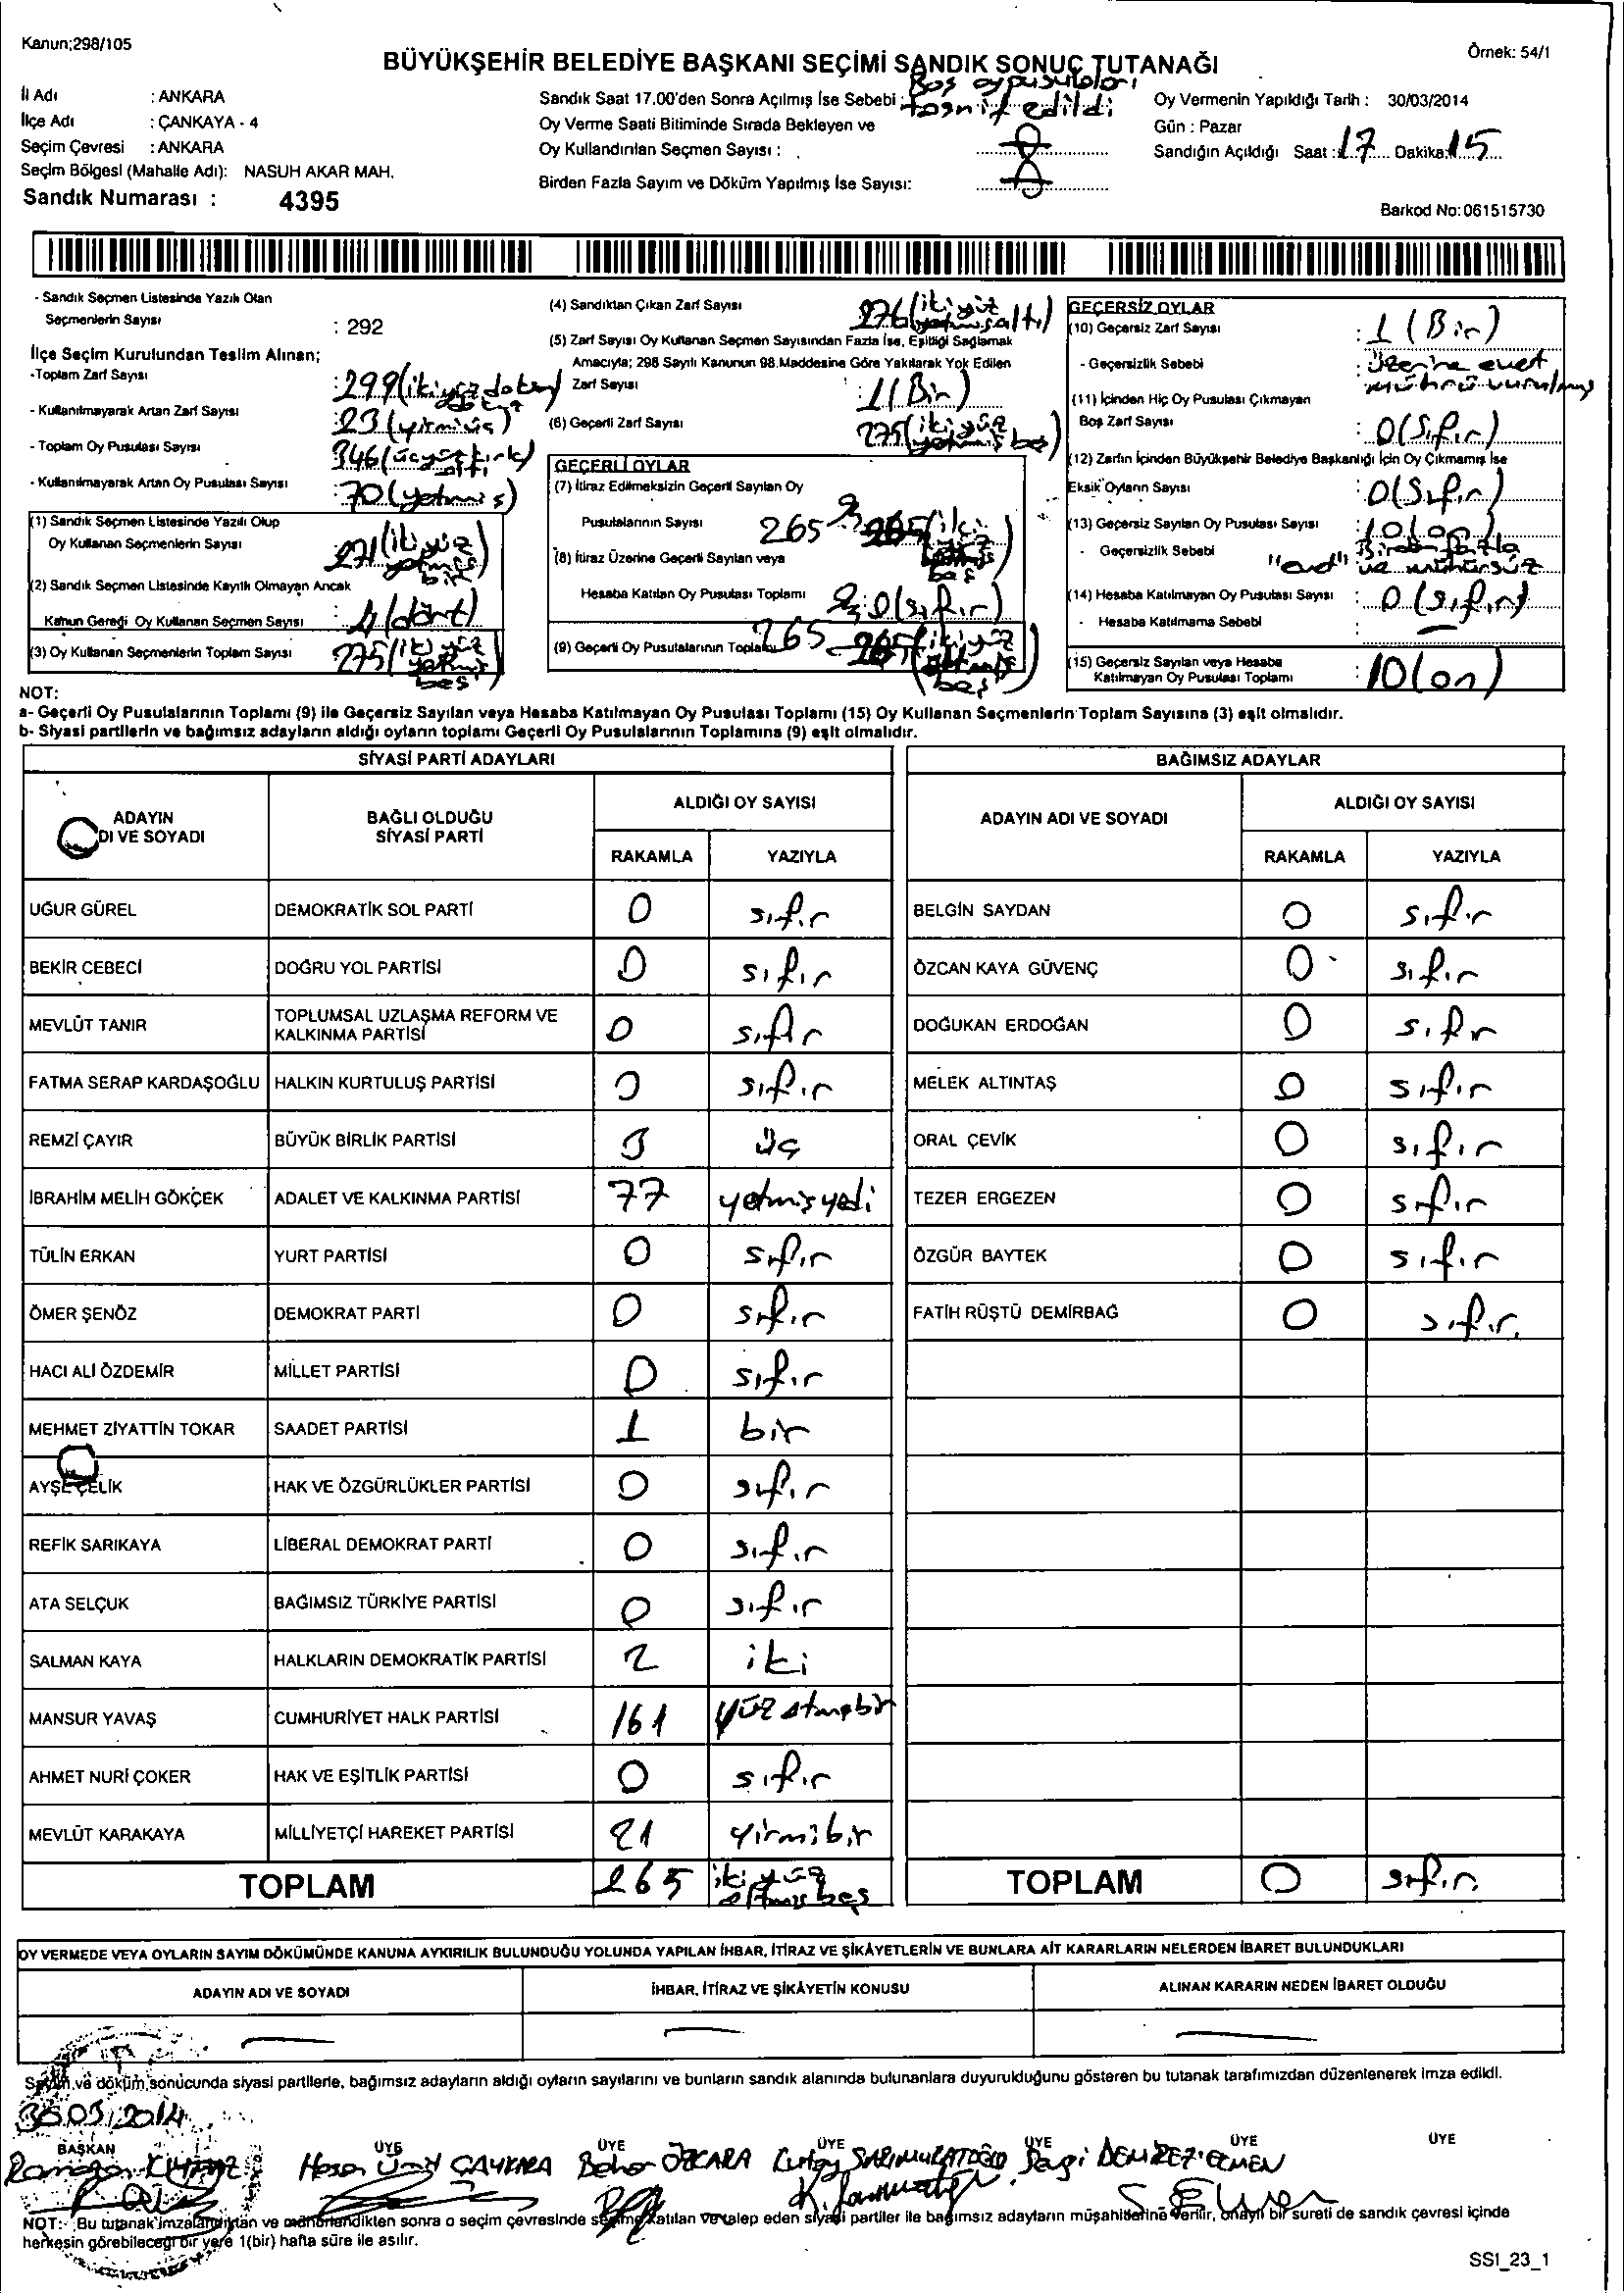 Kanun;298/105
Örnek: 54/1
BÜYÜKŞEHİR BELEDİYE BAŞKANI SEÇİMİ SANDIK SONUÇ TUTANAĞI
İl Adı : ANKARA
İlçe Adı : ÇANKAYA - 4
Seçim Çevresi : ANKARA
Seçim Bölgesi (Mahalle Adı): NASUH AKAR MAH.
Sandık Numarası : 4395
Sandık Saat 17.00'den Sonra Açılmış İse Sebebi : Boş oy pusulaları tasnif edildi
Oy Verme Saati Bitiminde Sırada Bekleyen ve
Oy Kullandırılan Seçmen Sayısı :
Birden Fazla Sayım ve Döküm Yapılmış İse Sayısı:
Oy Vermenin Yapıldığı Tarih : 30/03/2014
Gün : Pazar
Sandığın Açıldığı Saat : 17 Dakika: 15
Barkod No: 061515730
- Sandık Seçmen Listesinde Yazılı Olan
Seçmenlerin Sayısı : 292
İlçe Seçim Kurulundan Teslim Alınan;
-Toplam Zarf Sayısı : 299
- Kullanılmayarak Artan Zarf Sayısı : 23 (yirmiüç)
- Toplam Oy Pusulası Sayısı 346 (üçyüzkırkaltı)
- Kullanılmayarak Artan Oy Pusulası Sayısı : 70 (yetmiş)
(1) Sandık Seçmen Listesinde Yazılı Olup
Oy Kullanan Seçmenlerin Sayısı 271 (ikiyüz yetmiş bir)
(2) Sandık Seçmen Listesinde Kayıtlı Olmayan Ancak
Kanun Gereği Oy Kullanan Seçmen Sayısı : 4 (dört)
(3) Oy Kullanan Seçmenlerin Toplam Sayısı 275 (ikiyüz yetmiş beş)
(4) Sandıktan Çıkan Zarf Sayısı 276 (ikiyüz yetmişaltı)
(5) Zarf Sayısı Oy Kullanan Seçmen Sayısından Fazla İse, Eşitliği Sağlamak
Amacıyla; 298 Sayılı Kanunun 98.Maddesine Göre Yakılarak Yok Edilen
Zarf Sayısı : 1 (Bir)
(6) Geçerli Zarf Sayısı 275 (ikiyüz yetmiş beş)
GEÇERLİ OYLAR
(7) İtiraz Edilmeksizin Geçerli Sayılan Oy
Pusulalarının Sayısı 265 265 (iki yüz altmış beş)
(8) İtiraz Üzerine Geçerli Sayılan veya
Hesaba Katılan Oy Pusulası Toplamı 0 (sıfır)
(9) Geçerli Oy Pusulalarının Toplamı 265 265 (ikiyüz altmış beş)
GEÇERSİZ OYLAR
(10) Geçersiz Zarf Sayısı : 1 (Bir)
- Geçersizlik Sebebi : Üzerine evet mührü vurulmuş
(11) İçinden Hiç Oy Pusulası Çıkmayan
Boş Zarf Sayısı : 0 (sıfır)
(12) Zarfın İçinden Büyükşehir Belediye Başkanlığı İçin Oy Çıkmamış İse
Eksik Oyların Sayısı : 0 (sıfır)
(13) Geçersiz Sayılan Oy Pusulası Sayısı : 10 (on)
- Geçersizlik Sebebi Birden fazla ve mühürsüz
(14) Hesaba Katılmayan Oy Pusulası Sayısı : 0 (sıfır)
- Hesaba Katılmama Sebebi :
(15) Geçersiz Sayılan veya Hesaba
Katılmayan Oy Pusulası Toplamı : 10 (on)
NOT:
a- Geçerli Oy Pusulalarının Toplamı (9) ile Geçersiz Sayılan veya Hesaba Katılmayan Oy Pusulası Toplamı (15) Oy Kullanan Seçmenlerin Toplam Sayısına (3) eşit olmalıdır.
b- Siyasi partilerin ve bağımsız adayların aldığı oyların toplamı Geçerli Oy Pusulalarının Toplamına (9) eşit olmalıdır.
SİYASİ PARTİ ADAYLARI
ADAYIN
DI VE SOYADI
BAĞLI OLDUĞU
SİYASİ PARTİ
ALDIĞI OY SAYISI
RAKAMLA YAZIYLA
UĞUR GÜREL DEMOKRATİK SOL PARTİ 0 sıfır
BEKİR CEBECİ DOĞRU YOL PARTİSİ 0 sıfır
MEVLÜT TANIR TOPLUMSAL UZLAŞMA REFORM VE KALKINMA PARTİSİ 0 sıfır
FATMA SERAP KARDAŞOĞLU HALKIN KURTULUŞ PARTİSİ 0 sıfır
REMZİ ÇAYIR BÜYÜK BİRLİK PARTİSİ 3 üç
İBRAHİM MELİH GÖKÇEK ADALET VE KALKINMA PARTİSİ 77 yetmişyedi
TÜLİN ERKAN YURT PARTİSİ 0 sıfır
ÖMER ŞENÖZ DEMOKRAT PARTİ 0 sıfır
HACI ALİ ÖZDEMİR MİLLET PARTİSİ 0 sıfır
MEHMET ZİYATTİN TOKAR SAADET PARTİSİ 1 bir
AYŞE ÇELİK HAK VE ÖZGÜRLÜKLER PARTİSİ 0 sıfır
REFİK SARIKAYA LİBERAL DEMOKRAT PARTİ 0 sıfır
ATA SELÇUK BAĞIMSIZ TÜRKİYE PARTİSİ 0 sıfır
SALMAN KAYA HALKLARIN DEMOKRATİK PARTİSİ 2 iki
MANSUR YAVAŞ CUMHURİYET HALK PARTİSİ 161 yüz atmışbir
AHMET NURİ ÇOKER HAK VE EŞİTLİK PARTİSİ 0 sıfır
MEVLÜT KARAKAYA MİLLİYETÇİ HAREKET PARTİSİ 21 yirmibir
TOPLAM 265 iki yüz altmış beş
BAĞIMSIZ ADAYLAR
ADAYIN ADI VE SOYADI
ALDIĞI OY SAYISI
RAKAMLA YAZIYLA
BELGİN SAYDAN 0 sıfır
ÖZCAN KAYA GÜVENÇ 0 sıfır
DOĞUKAN ERDOĞAN 0 sıfır
MELEK ALTINTAŞ 0 sıfır
ORAL ÇEVİK 0 sıfır
TEZER ERGEZEN 0 sıfır
ÖZGÜR BAYTEK 0 sıfır
FATİH RÜŞTÜ DEMİRBAĞ 0 sıfır
TOPLAM 0 sıfır
OY VERMEDE VEYA OYLARIN SAYIM DÖKÜMÜNDE KANUNA AYKIRILIK BULUNDUĞU YOLUNDA YAPILAN İHBAR, İTİRAZ VE ŞİKÂYETLERİN VE BUNLARA AİT KARARLARIN NELERDEN İBARET BULUNDUKLARI
ADAYIN ADI VE SOYADI
İHBAR, İTİRAZ VE ŞİKÂYETİN KONUSU
ALINAN KARARIN NEDEN İBARET OLDUĞU
Sayım ve döküm sonucunda siyasi partilerle, bağımsız adayların aldığı oyların sayılarını ve bunların sandık alanında bulunanlara duyurulduğunu gösteren bu tutanak tarafımızdan düzenlenerek imza edildi.
30.03.2014
BAŞKAN ÜYE ÜYE ÜYE ÜYE ÜYE ÜYE
Ramazan Hasan Ümit ÇAYKARA ÖZKARA SARIMURATOĞLU
NOT: Bu tutanak imzalandıktan ve mühürlendikten sonra o seçim çevresinde seçime katılan ve talep eden siyasi partiler ile bağımsız adayların müşahitlerine verilir, onaylı bir sureti de sandık çevresi içinde
herkesin görebileceği bir yere 1(bir) hafta süre ile asılır.
SSI_23_1